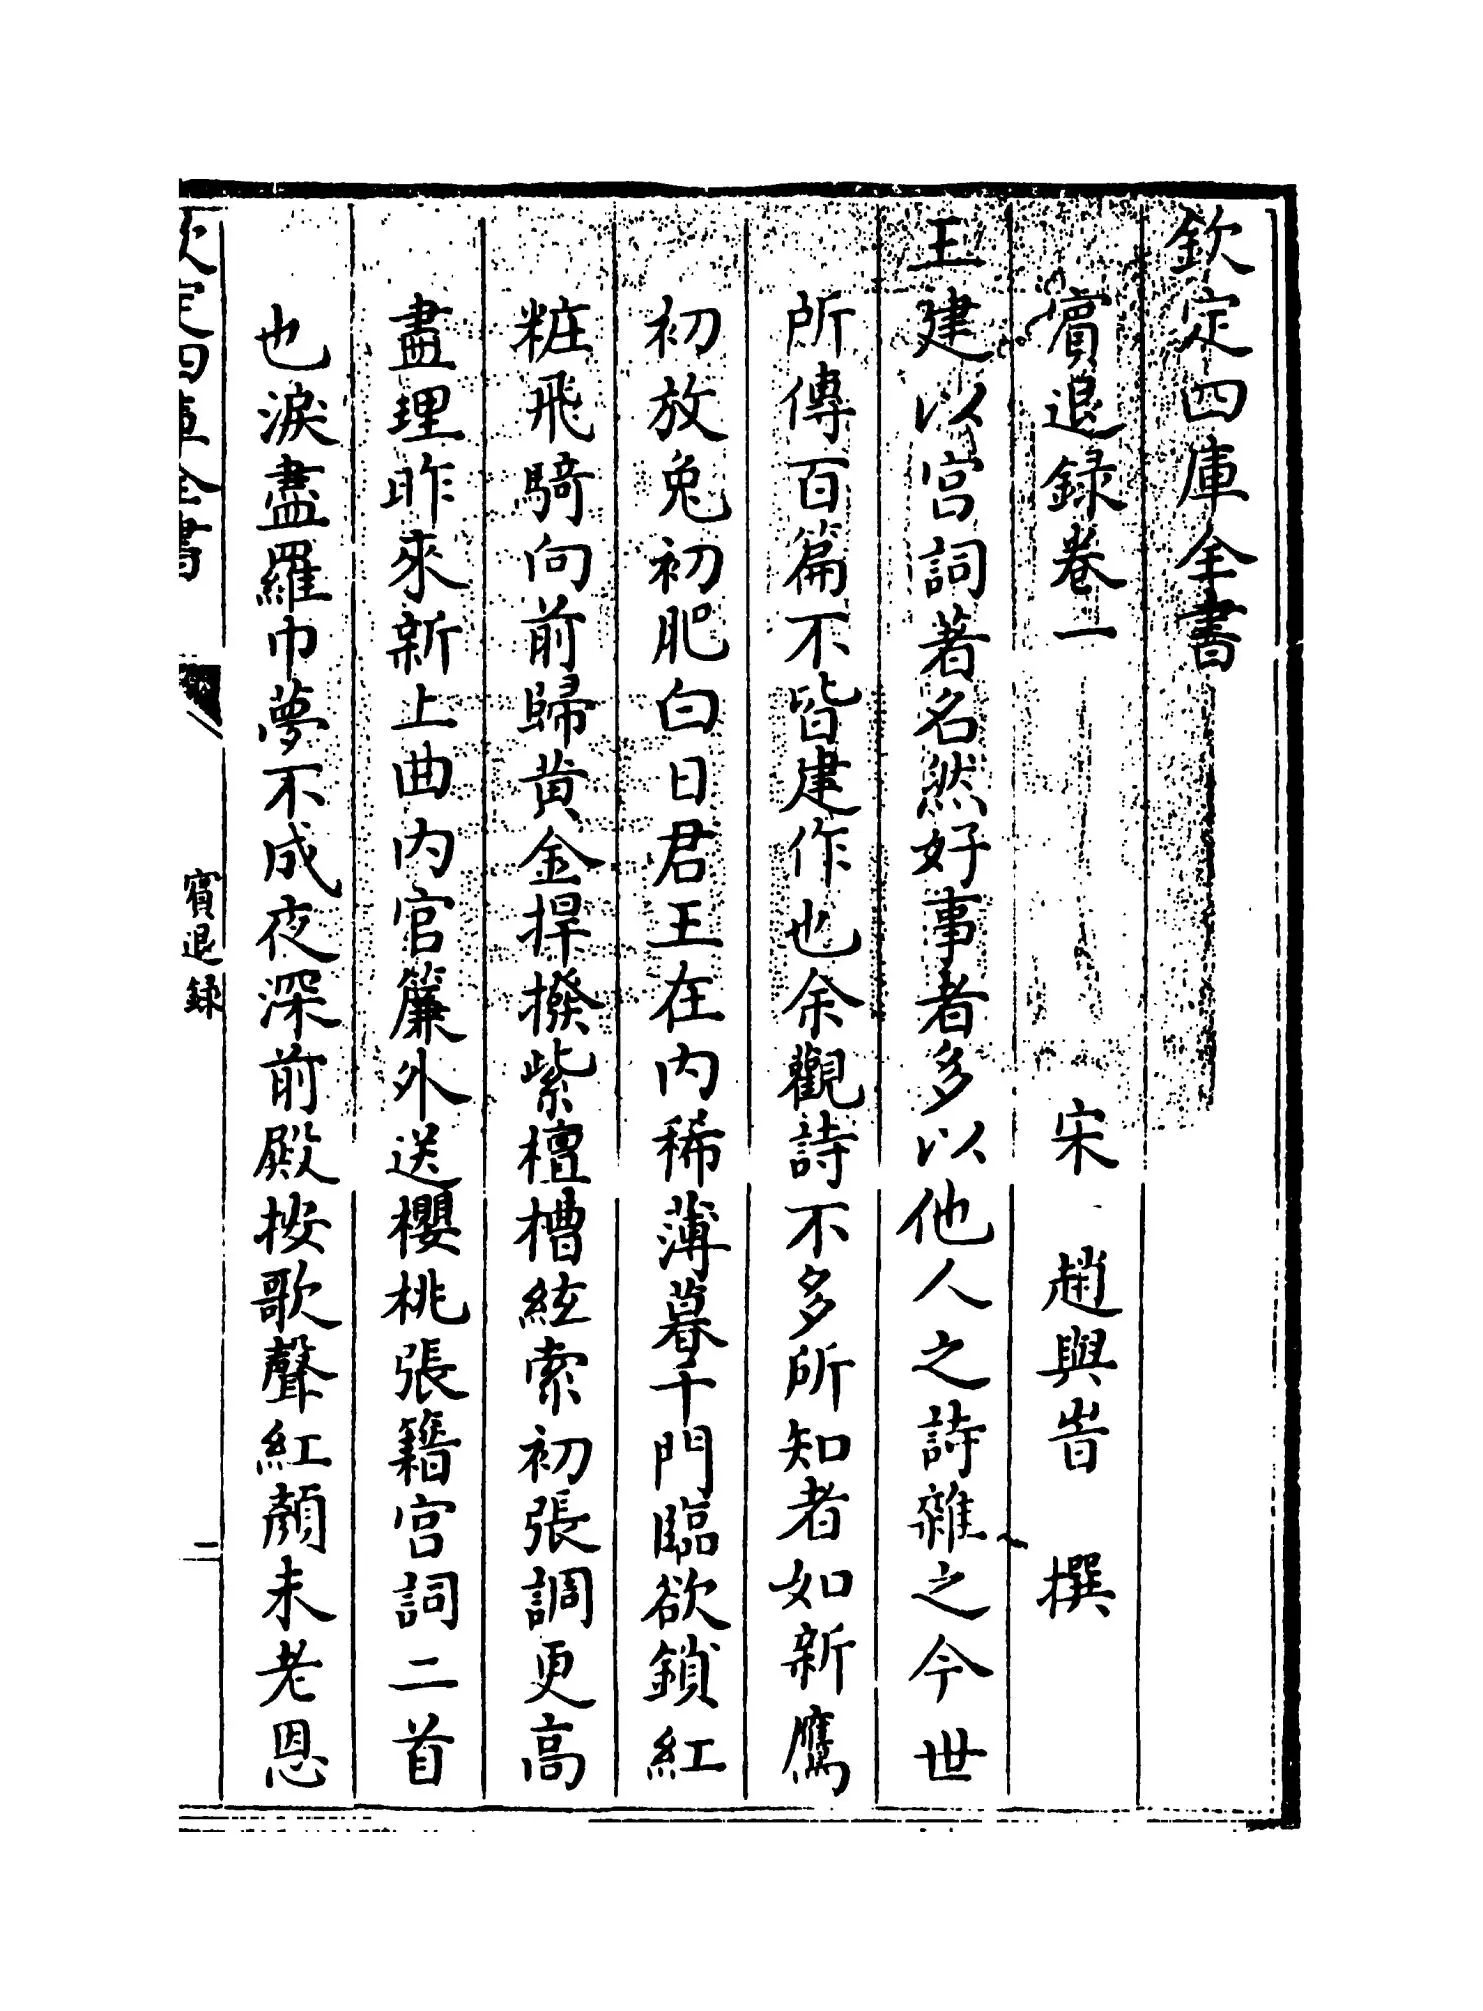 欽定四庫全書
賓退録卷一
宋 趙與旹 撰
王建以宫詞著名然好事者多以他人之詩雜之今世
所傳百篇不皆建作也余觀詩不多所知者如新鷹
初放兔初肥白日君王在内稀薄暮千門臨欲鎖紅
粧飛騎向前歸黄金捍撥紫檀槽絃索初張調更高
盡理昨來新上曲内官簾外送櫻桃張籍宫詞二首
也淚盡羅巾夢不成夜深前殿按歌聲紅顔未老恩
欽定四庫全書
賓退録
二